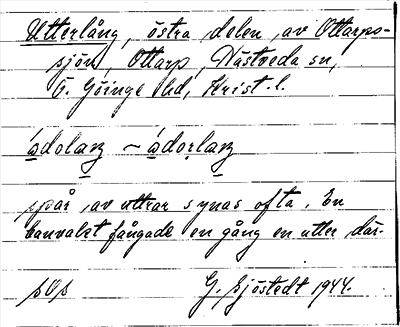 Utterlång, östra delen av Ottarps-
sjön, Ottarp, Nästveda sn,
Ö. Göinge hd, Krist. l.
ádolaŋ ~ ádorlaŋ
spår av uttrar synas ofta. En
banvakt fångade en gång en utter där.
G. Sjöstedt 1944.